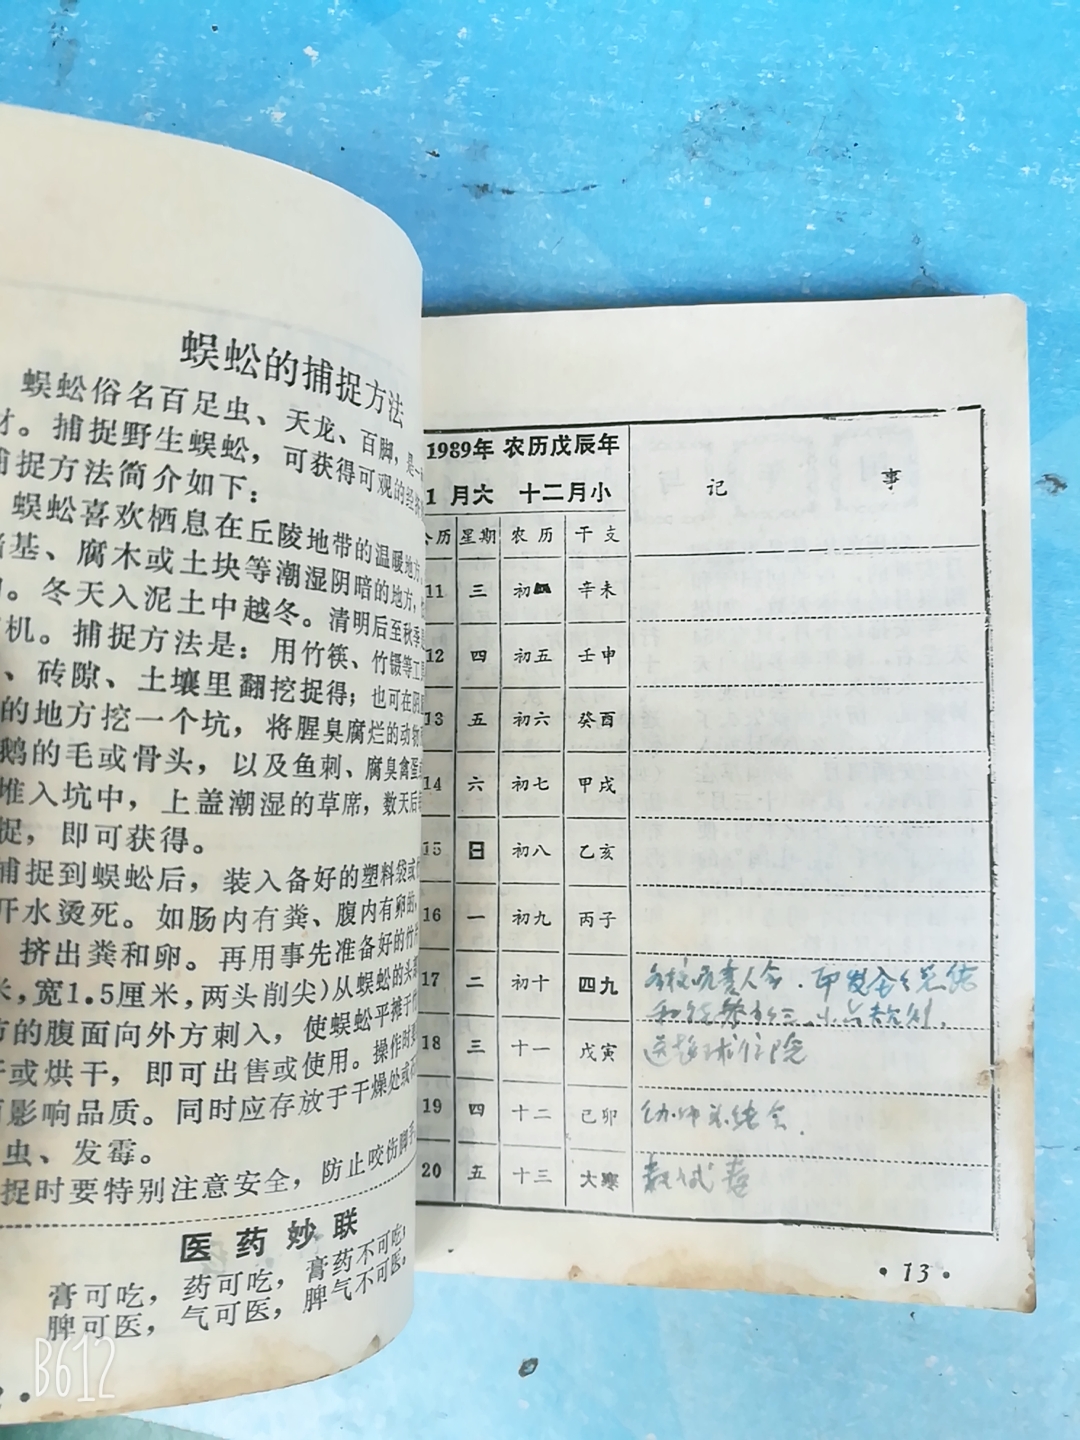 蜈蚣的捕捉方法
蜈蚣俗名百足虫、天龙、百脚，是一
材。捕捉野生蜈蚣，可获得可观的经
捕捉方法简介如下：
蜈蚣喜欢栖息在丘陵地带的温暖地方，
墙基、腐木或土块等潮湿阴暗的地方，
。冬天入泥土中越冬。清明后至秋季是
机。捕捉方法是：用竹筷、竹镊等工具
、砖隙、土壤里翻挖捉得；也可在阴
的地方挖一个坑，将腥臭腐烂的动物
鹅的毛或骨头，以及鱼刺、腐臭禽蛋
堆入坑中，上盖潮湿的草席，数天后
捉，即可获得。
捕捉到蜈蚣后，装入备好的塑料袋或
开水烫死。如肠内有粪、腹内有卵的，
挤出粪和卵。再用事先准备好的竹
米，宽1.5厘米，两头削尖）从蜈蚣的头
方的腹面向外方刺入，使蜈蚣平摊于
干或烘干，即可出售或使用。操作时要
影响品质。同时应存放于干燥处或
虫、发霉。
捉时要特别注意安全，防止咬伤脚手
医药妙联
膏可吃，药可吃，膏药不可吃；
脾可医，气可医，脾气不可医。
B612
1989年 农历戊辰年
1 月大 十二月小
记 事
公历 星期 农历 干支
11 三 初四 辛未
12 四 初五 壬申
13 五 初六 癸酉
14 六 初七 甲戌
15 日 初八 乙亥
16 一 初九 丙子
17 二 初十 四九 各校负责人会．印发全乡总结
18 三 十一 戊寅 住院
19 四 十二 己卯 总结会．
20 五 十三 大寒 考试卷
·13·